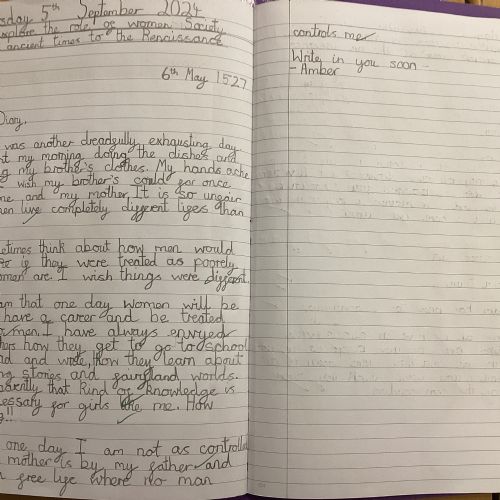 sday 5th September 2024
xplore the role of women Society
ancient times to the Renaissance
6th May 1527
Diary,
was another dreadfully exhausting day
t my morning doing the dishes and
g my brother's clothes. My hands ache
wish my brother's could for once
me and my mother. It is so unfair
en live completely different lifes than
etimes think about how men would
if they were treated as poorly
omen are. I wish things were different.
am that one day women will be
have a carer and be treated
men. I have always envyed
hers how they get to go to school
d and write, how they learn about
ng stories and fairyland worlds.
parently that kind of knowledge is
essary for girls like me. How
!!
one day I am not as controlled
mother is by my father and
free life where no man
controls me
Write in you soon -
- Amber